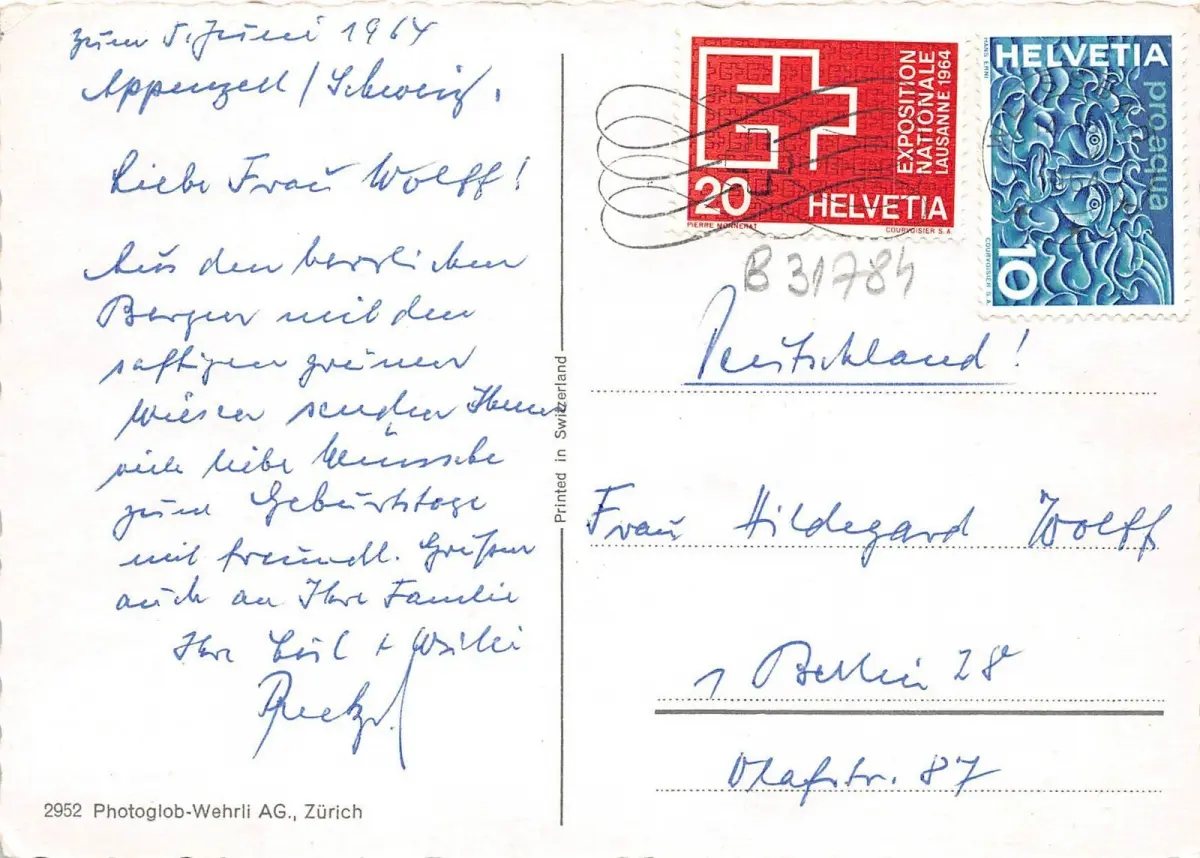 zum 5. Juni 1964
Appenzell / Schweiz.
Liebe Frau Wolff!
Aus den herrlichen
Bergen mit den
saftigen grünen
Wiesen senden Ihnen
viele liebe Wünsche
zum Geburtstage
mit freundl. Grüßen
auch an Ihre Familie
Ihre
2952 Photoglob-Wehrli AG., Zürich
Printed in Switzerland
EXPOSITION
NATIONALE
LAUSANNE 1964
20
HELVETIA
PIERRE MONNERAT
COURVOISIER S.A.
HELVETIA
HANS ERNI
pro aqua
10
COURVOISIER S.A.
B 31784
Deutschland!
Frau Hildegard Wolff
1 Berlin 28
Olafstr. 87